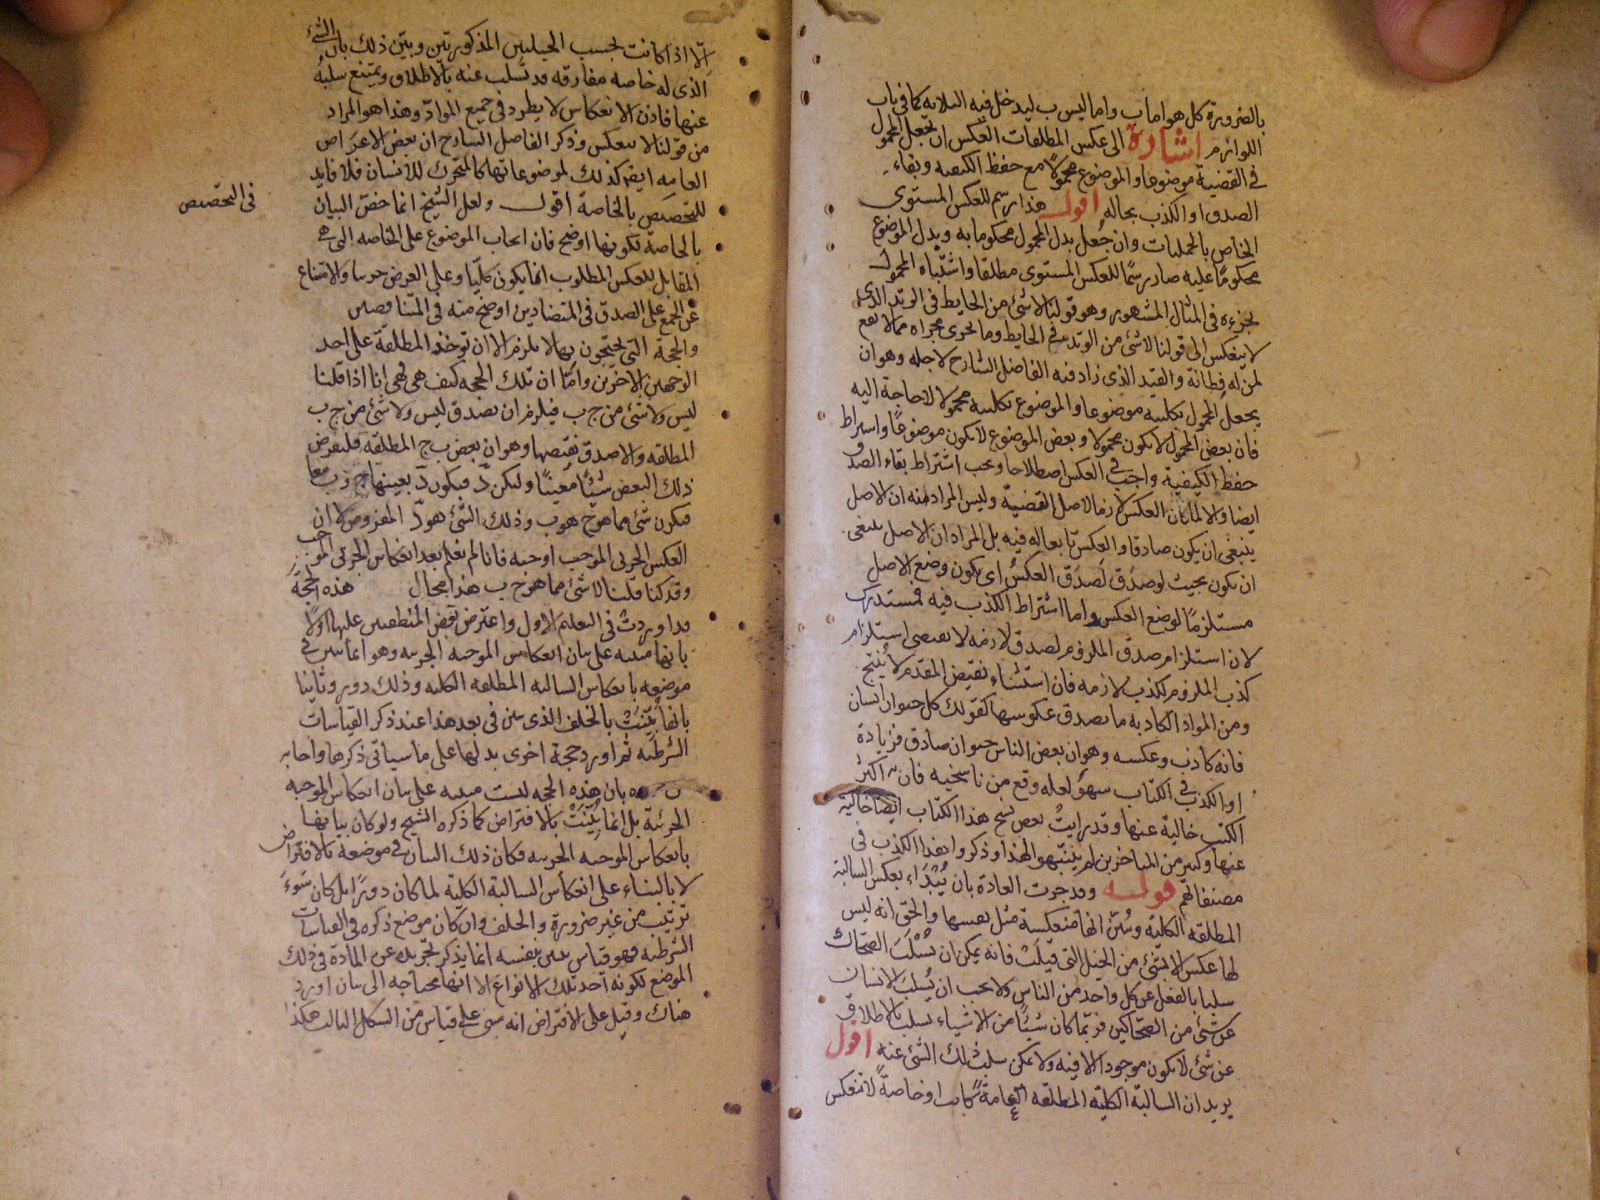 بالضرورة كل هو اما ب واما ليس ب ليدخل فيه السلابه كما في باب
اللوازم اشارة الى عكس المطلقات العكس ان تجعل المحمول
في القضية موضوعا والموضوع محمولا مع حفظ الكيفيه وبقاء
الصدق او الكذب بحاله اقول هذا رسم للعكس المستوى
الخاص بالحمليات وان جُعل بدل المحمول محكوما به وبدل الموضوع
محكومًا عليه صار رسمًا للعكس المستوى مطلقا واشتباه المحمول
بجزءه في المثال المشهور وهو قولنا لا شئ من الحايط في الوتد الذى
لا ينعكس الى قولنا لا شئ من الوتد في الحايط وما يجرى مجراه مما لا يقع
لمن له فطانة والقيد الذى زاد فيه الفاضل الشارح لاجله وهو ان
يجعل المحمول بكليته موضوعا والموضوع بكليته محمولا لا حاجة اليه
فان بعض المحمول لا يكون محمولا وبعض الموضوع لا يكون موضوعًا واشتراط
حفظ الكيفية واجب في العكس اصطلاحا ويجب اشتراط بقاء الصدق
ايضا والا لما كان العكس لازما لاصل القضية وليس المراد منه ان الاصل
ينبغى ان يكون صادقا والعكس تابعا له فيه بل المراد ان الاصل ينبغى
ان يكون بحيث لو صدق لصدق العكس اى يكون وضع الاصل
مستلزمًا لوضع العكس واما اشتراط الكذب فيه فمستدرك
لان استلزام صدق الملزوم لصدق لازمه لا يقتضى استلزام
كذب الملزوم لكذب لازمه فان استثناء نقيض المقدم لا يُنتج
ومن المواد الكاذبه ما يصدق عكوسها كقولك كل حيوان انسان
فانه كاذب وعكسه وهو ان بعض الناس حيوان صادق فزيادة
او الكذب في الكتاب سهو لعله وقع من ناسخيه فان اكثر
الكتب خالية عنها وقد رايت بعض نسخ هذا الكتاب ايضا خالية
عنها وكثير من المتاخرين لم يتنبهوا لهذا وذكروا هذا الكذب في
مصنفاتهم قوله وقد جرت العادة بان يُبْدَاء بعكس السالبة
المطلقه الكلية ويُبيّن انها منعكسة مثل نفسها والحق انه ليس
لها عكس الا بشئ من الحيل التى قيلت فانه يمكن ان يُسْلَب الضحاك
سلبا بالفعل عن كل واحد من الناس ولا يجب ان يُسلب الانسان
عن شئ من الضحاكين فربما كان شيئًا من الاشياء يسلب بالاطلاق
عن شئ لا يكون موجودا الا فيه ولا يمكن سلب ذلك الشئ عنه اقول
يريد ان السالبة الكلية المطلقه العامة كانت او خاصةً لا تنعكس
الّا اذا كانت بحسب الحيلتين المذكورتين وبيّن ذلك بان الشئ
الذى له خاصه مفارقه قد تُسلب عنه بالاطلاق ويمتنع سلبه
عنها فاذن الانعكاس لا يطرد في جميع الموادّ وهذا هو المراد
من قولنا لا ينعكس وذكر الفاضل الشارح ان بعض الاعراض
العامه ايضا كذلك لموضوعاتها كالمتحرك للانسان فلا فايدة
للتخصيص بالخاصة اقول ولعل الشيخ انما خصّ البيان
في التخصيص
بالخاصة لكونها اوضح فان ايجاب الموضوع على الخاصه التى هى
المقابل للعكس المطلوب انما يكون كليّا وعلى العرض جزءيا والامتناع
عن الجمع على الصدق في المتضادين اوضح منه في المتناقضين
والحجة التى يحتجون بها لا يلزم الا ان توخذ المطلقة على احد
الوجهين الاخرين وامّا ان تلك الحجه كيف هى فهى انا اذا قلنا
ليس ولا شئ من ج ب فيلزم ان يصدق ليس ولا شئ من ج ب
المطلقه والا صدق نقيضها وهو ان بعض ب ج المطلقه فلنفرض
ذلك البعض شيئًا مُعَيّنًا وليكن دّ فيكون دّ بعينها ج وب معا
فيكون شئ مما هو ج هو ب وذلك الشئ هو دّ المفروض لا ان
العكس الجزئى الموجب اوجبه فانا لم نعلم بعد انعكاس الجزئى الموجب
وقد كنا قلنا لا شئ مما هو ج ب هذا محال هذه الحجة
قد اوردت في التعليم الاول واعترض بعض المنطقيين عليها اولاً
بانها مبنيه على بيان انعكاس الموجبه الجزئيه وهو انما يتبين في
موضعه بانعكاس السالبه المطلقه الكليه وذلك دور وثانيا
بانها بُيّنَتْ بالخلف الذى يتبين فى بعد هذا عند ذكر القياسات
الشرطيه ثم اورد حجة اخرى بدلها على ما سياتى ذكرها واجابه
بان هذه الحجه ليست مبنيه على بيان انعكاس الموجبه
الجزئية بل انما بُيّنَتْ بالافتراض كما ذكره الشيخ ولو كان بيانها
بانعكاس الموجبه الجزئيه فكان ذلك البيان في موضعه بالافتراض
لا بالبناء على انعكاس السالبة الكلية لما كان دورًا بل كان سُوءَ
ترتيب من غير ضرورة والخلف وان كان موضع ذكره في القياسات
الشرطيه فهو قياس بيّن بنفسه انما يذكر تجريده عن المادّة في ذلك
الموضع لكونه احد تلك الانواع لا انها محتاجه الى بيان اورد
هناك وقيل على الافتراض انه مبنى على قياس من الشكل الثالث هكذا